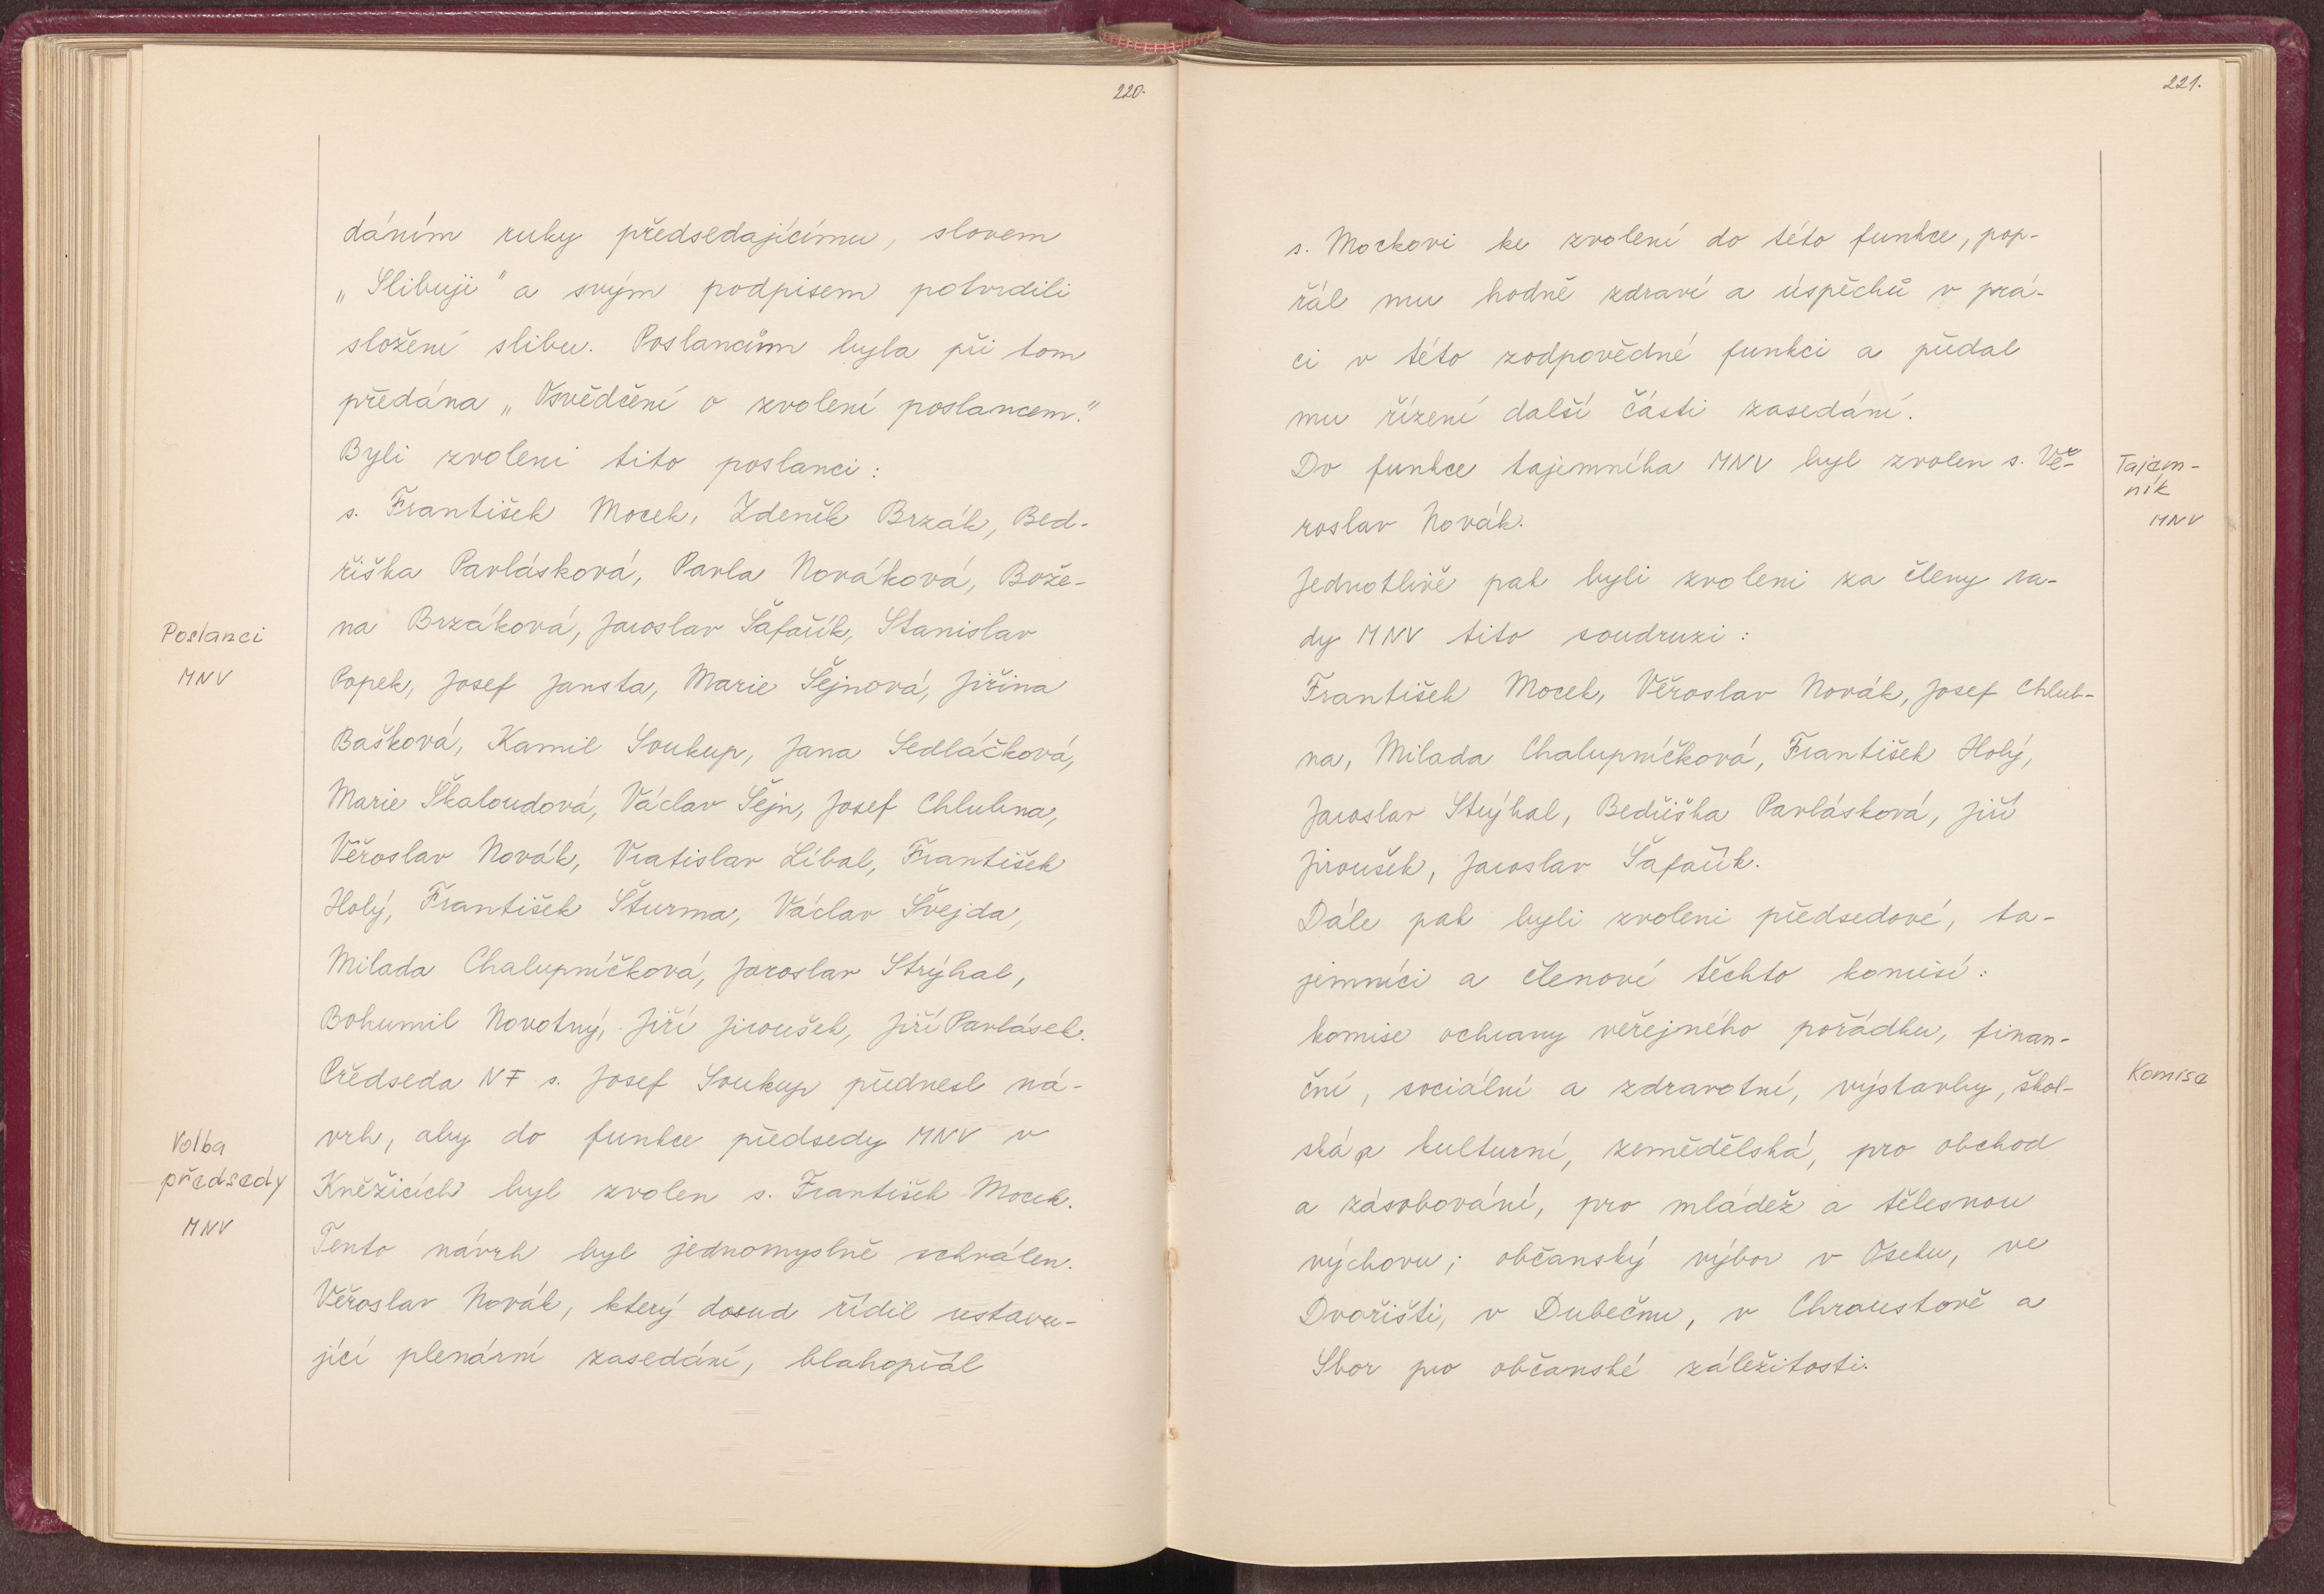 220.
dáním ruky předsedajícímu, slovem
„Slibuji" a svým podpisem potvrdili
složení slibu. Poslancům byla při tom
předána „Osvědčení o zvolení poslancem."
Byli zvoleni tito poslanci:
s. František Mocek, Zdeněk Brzák, Bed-
řiška Pavlásková, Pavla Nováková, Bože-
Poslanci
na Brzáková, Jaroslav Šafařík, Stanislav
MNV
Popek, Josef Jansta, Marie Šejnová, Jiřina
Bašková, Kamil Soukup, Jana Sedláčková,
Marie Škaloudová, Václav Šejn, Josef Chlubna,
Věroslav Novák, Vratislav Líbal, František
Holý, František Šturma, Václav Švejda,
Milada Chalupníčková, Jaroslav Strýhal,
Bohumil Novotný, Jiří Jiroušek, Jiří Pavlásek.
Předseda NF s. Josef Soukup přednesl ná-
Volba
vrh, aby do funkce předsedy MNV v
předsedy
Kněžicích byl zvolen s. František Mocek.
MNV
Tento návrh byl jednomyslně schválen.
Věroslav Novák, který dosud řídil ustavu-
jící plenární zasedání, blahopřál
221.
s. Mockovi ke zvolení do této funkce, pop-
řál mu hodně zdraví a úspěchů v prá-
ci v této zodpovědné funkci a předal
mu řízení další části zasedání.
Do funkce tajemníka MNV byl zvolen s. Vě-
Tajem-
ník
roslav Novák.
MNV
Jednotlivě pak byli zvoleni za členy ra-
dy MNV tito soudruzi:
František Mocek, Věroslav Novák, Josef Chlub-
na, Milada Chalupníčková, František Holý,
Jaroslav Strýhal, Bedřiška Pavlásková, Jiří
Jiroušek, Jaroslav Šafařík.
Dále pak byli zvoleni předsedové, ta-
jemníci a členové těchto komisí:
komise ochrany veřejného pořádku, finan-
Komise
ční, sociální a zdravotní, výstavby, škol-
ská a kulturní, zemědělská, pro obchod
a zásobování, pro mládež a tělesnou
výchovu; občanský výbor v Oseku, ve
Dvořišti, v Dubečnu, v Chroustově a
Sbor pro občanské záležitosti.